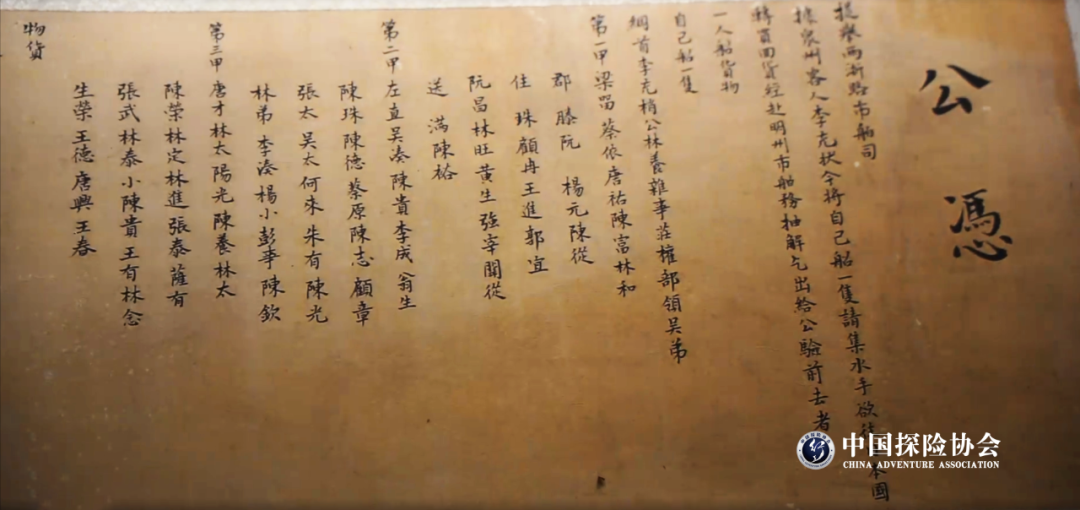 公憑
提舉兩浙路市舶司
據泉州客人李充狀今將自己船一隻請集水手欲往日本國
轉買回貨經赴明州市舶務抽解乞出給公驗前去者
一人船貨物
自己船一隻
綱首李充梢公林養雜事莊權部領吳弟
第一甲梁留蔡依唐祐陳富林和
郡滕阮 楊元陳從
住珠顧冉王進郭宜
阮昌林旺黃生強宰關從
送滿陳裕
第二甲左直吳湊陳貴李成翁生
陳珠陳德蔡原陳志顧章
張太吳太何來朱有陳光
林弟李湊楊小彭事陳欽
第三甲唐才林太陽光陳養林太
陳榮林定林進張泰薩有
張武林泰小陳貴王有林念
生榮王德唐興王春
物貨
中国探险协会
CHINA ADVENTURE ASSOCIATION